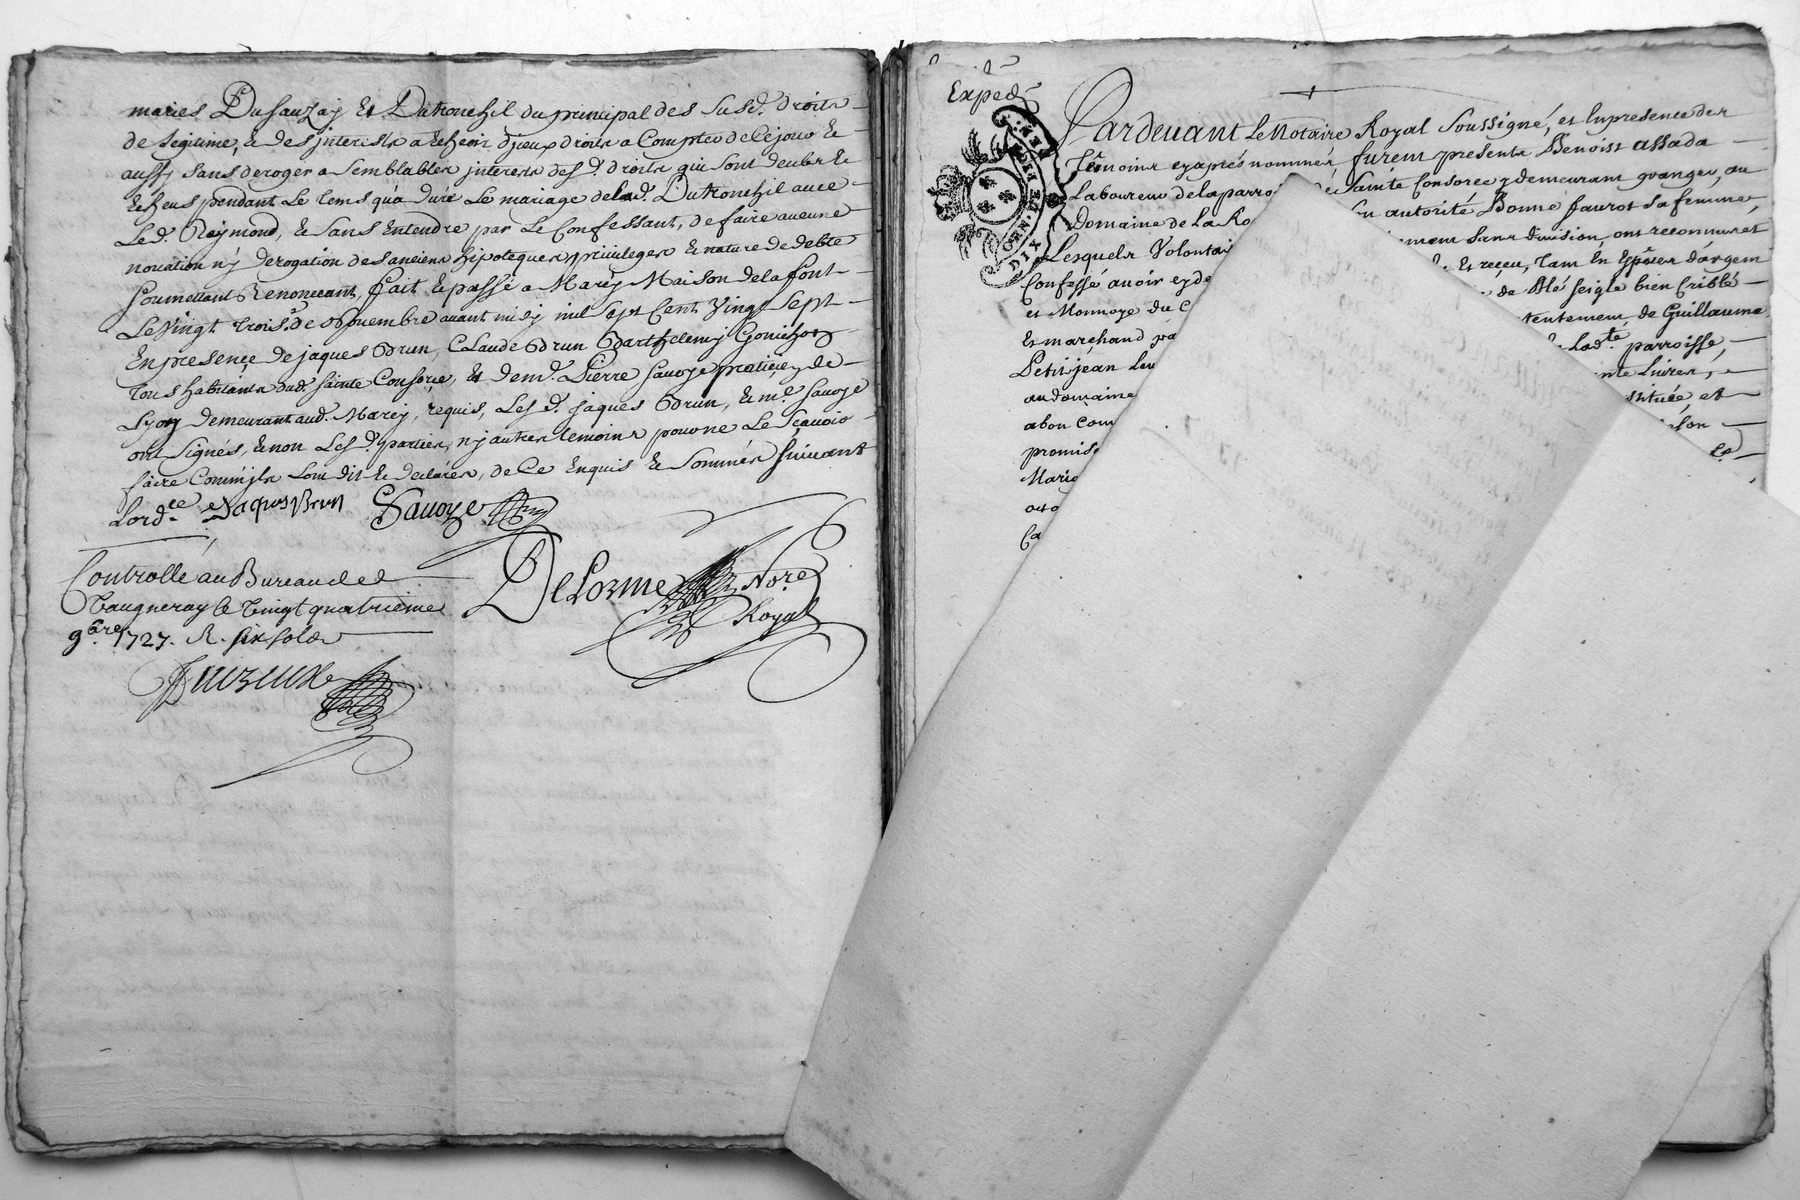 mariés Dusauzay Et Dutronchil du principal des susd. droits
de legitime, & des interests a Echeoir d'jceux droits a Compter de Cejour &
aussy sans deroger a semblables interests desd. droits qui sont deubs &
Echeus pendant Le tems qu'a duré Le mariage de lad. Dutronchil avec
Led. Reymond, & sans Entendre par Le Confessant, de faire aucune
novation n'y derogation de sanciens hipoteques privileges & nature de debte
soumettant Renonceant, fait & passé a Marcy Maison de la font
Le Vingt trois.e de Novembre avant midy mil sept Cent Vingt sept
En presence de jaques Brun, Claude Brun Barthelemy Gonichon
tous habitants dud. sainte Consorce, Et de m.e Pierre savoye praticien de
Lyon demeurant aud. Marcy, requis, Les d. jaques Brun, & m.e savoye
ont signés, & non Les d. parties, n'y autres temoins pour ne Le sçavoir
faire Comm'jls L'ont dit & declarés, de Ce Enquis & sommés suivant
L'ord.ce Jaques Brun Savoye
Controllé au Bureau de
Vaugneray le Vingt quatrieme
9bre 1727. R. six sols
DeLorme Nore
Royal
Exped
Pardevant Le Notaire Royal soussigné, et En presence des
Témoins cy aprés nommés furent presents Benoist assada
Laboureur de la parroi de Sainte Consorce y demeurant granger, au
Domaine de La Ro son autorité Bonne faurot sa femme,
Lesquels Volontai sans division, ont reconnu et
Confessé avoir eü de Et reçeu, tam En Especes d'argent
et Monnoye du C de Blé seigle bien Criblé
Et marchand pa tentement de Guillaume
Petitjean Leu Lad.te parroisse,
au domaine nte Livres,
a bon Com stituée, et
promis son
Mario
DIX DEN. LYON. GEN.